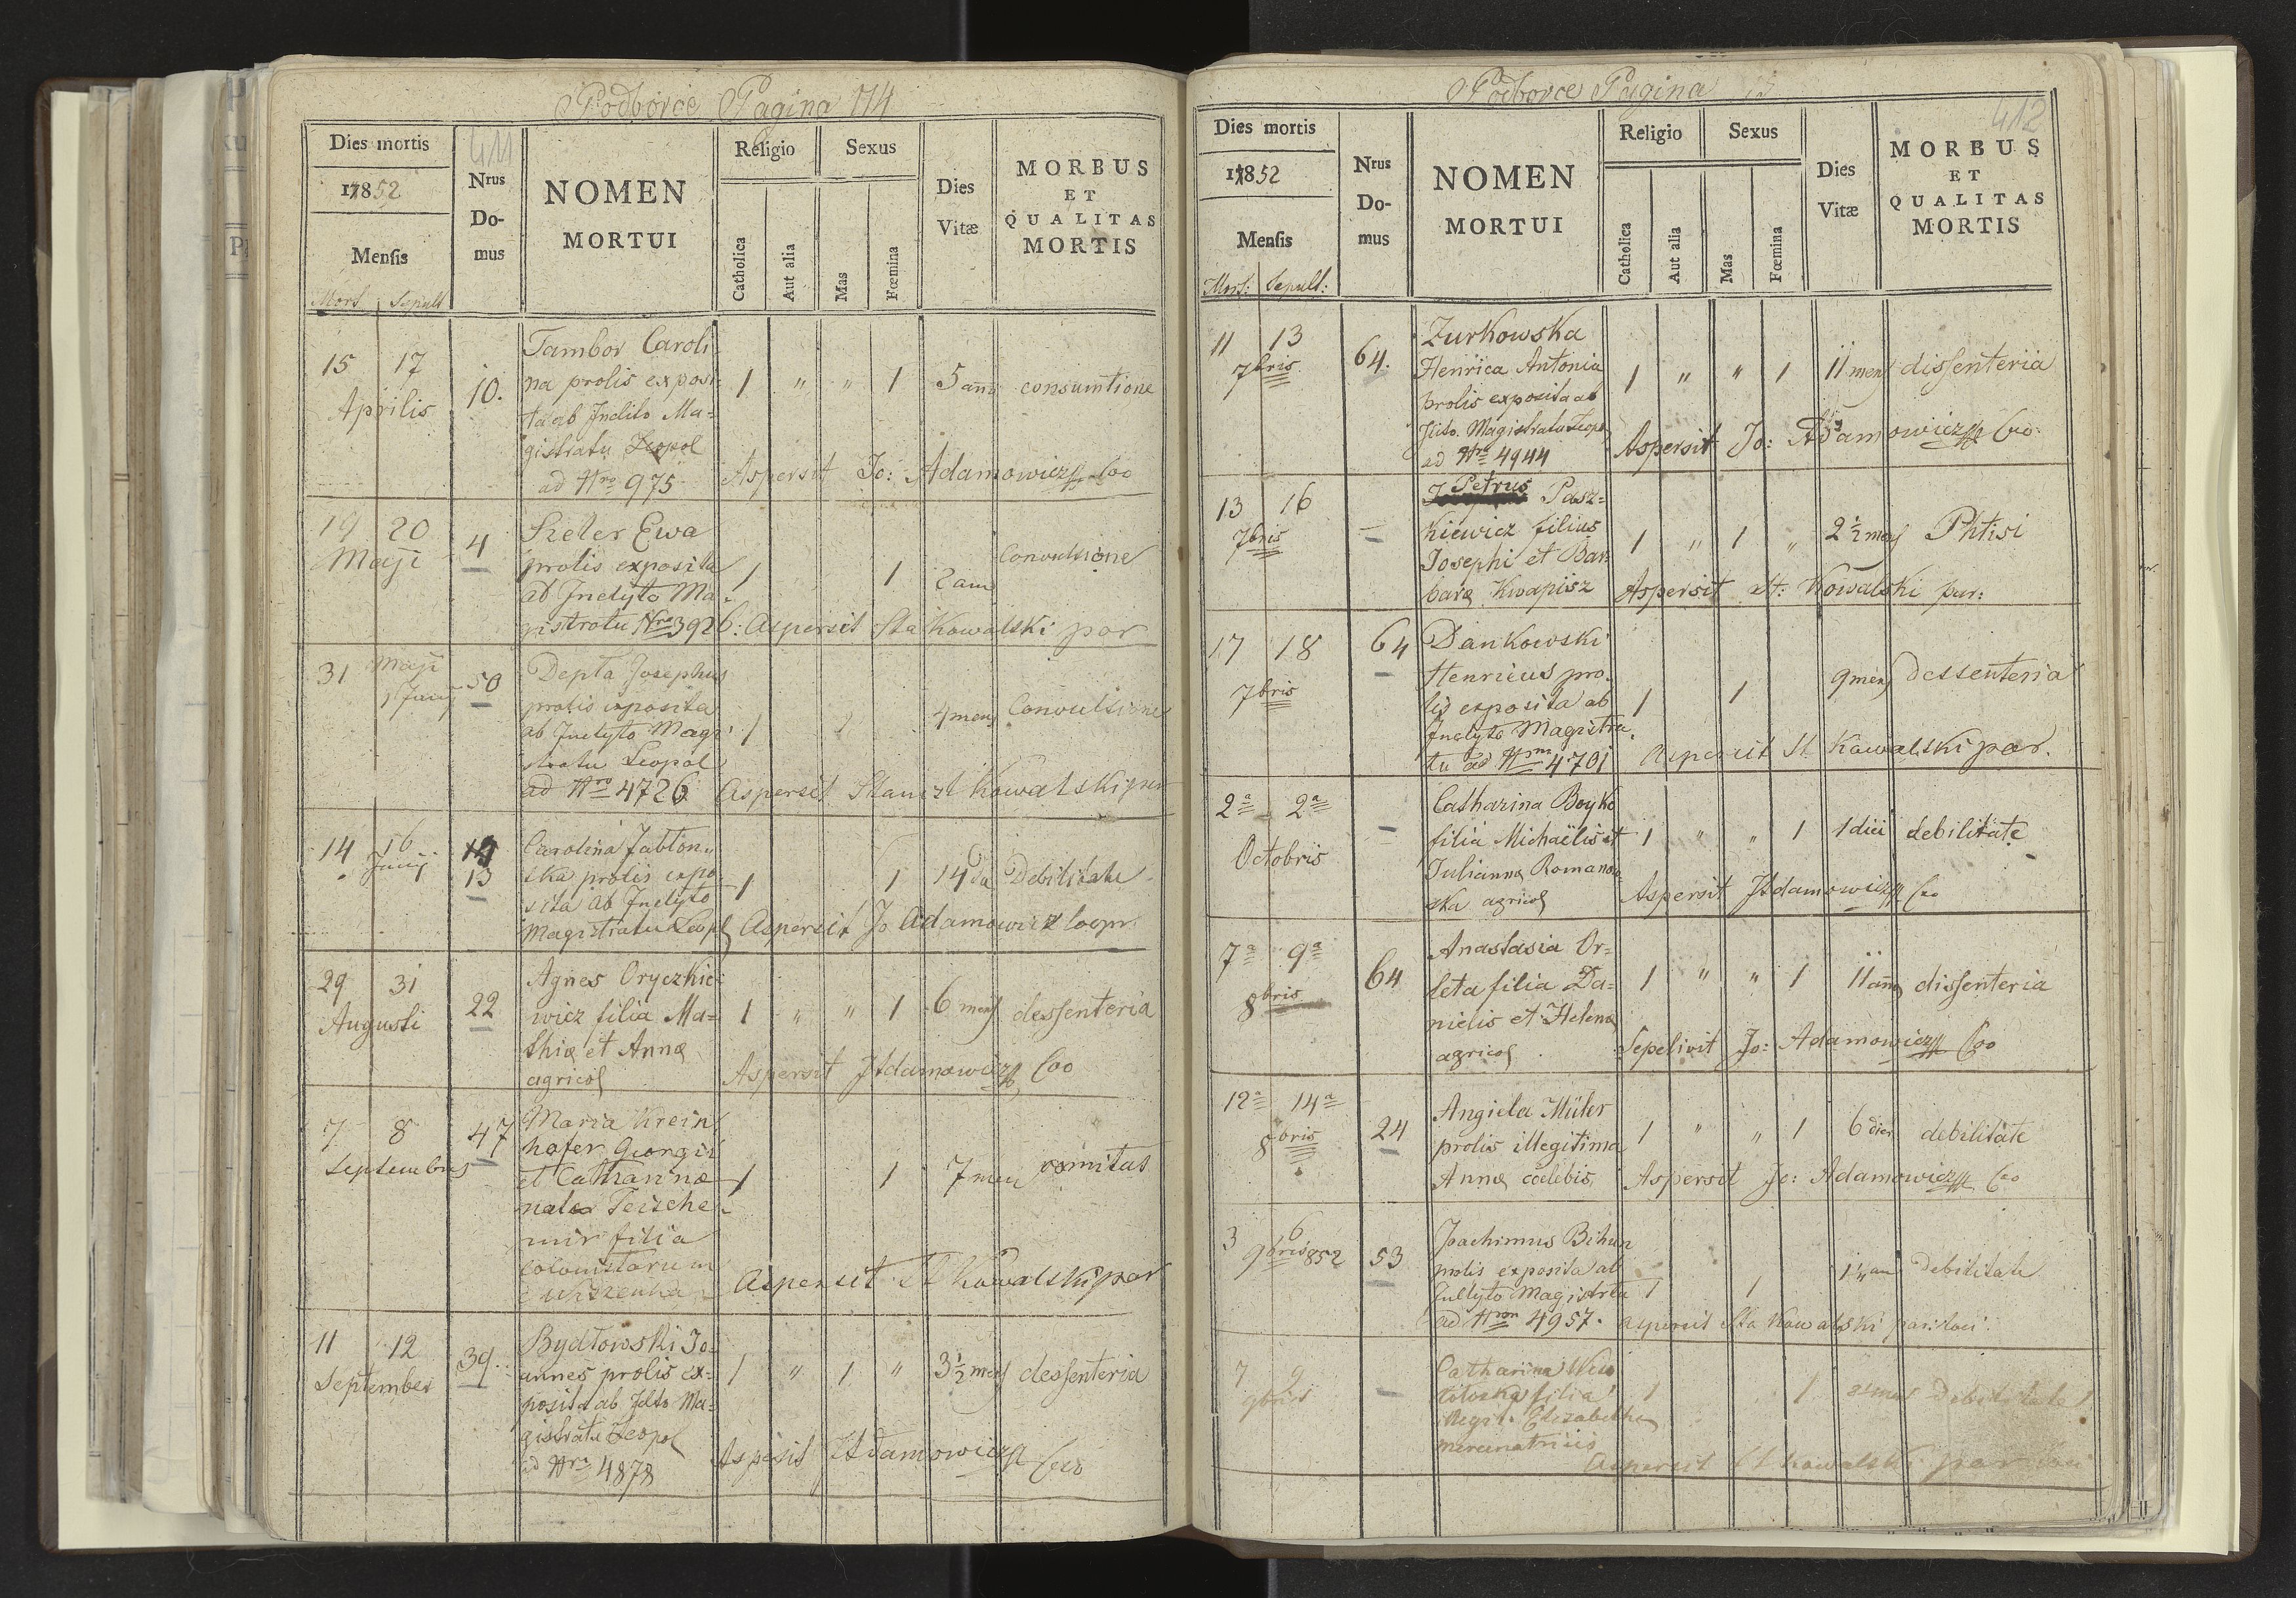 Podborce Pagina 114
Dies mortis
1852
Mensis
Mort. Sepult
411
Nrus
Do-
mus
NOMEN
MORTUI
Religio
Catholica
Aut alia
Sexus
Mas
Fœmina
Dies
Vitæ
MORBUS
ET
QUALITAS
MORTIS
15 17
Aprilis
10.
Tambor Caroli-
na prolis exposi-
ta ab Inclito Ma=
gistratu Leopol
ad Nro 975
1 " " 1 5 ann consumtione
Aspersit Jo: Adamowicz Coo
19 20
Maji
4
Ewa
prolis exposita
ab Inclyto Ma-
gistratu Nro 3926:
1 1 2 ann Convulsione
Aspersit Sta Kowalski par
31 Maji
1 Junij
50
Depta Josephus
prolis exposita
ab Inclyto Magi-
stratu Leopol
ad Nro 4726
1 4 mens Convulsione
Aspersit Stanisl Kowalski par
14 16
Junij
13
Carolina Jablon-
ska prolis expo-
sita ab Inclyto
Magistratu Leopol
1 1 14 die Debilitate
Aspersit Jo Adamowicz coopr.
29 31
Augusti
22
Agnes Oryczkie-
wicz filia Ma=
thiæ et Annæ
agricol
1 " " 1 6 mens dessenteria
Aspersit J Adamowicz Coo
7 8
Septembris
47
Maria Krein
hofer Georgii
et Catharinæ
natæ
filia
colonistarum
1 1 7 men vomitus
Aspersit St Kowalski par
11 12
September
39.
Bydłowski Jo-
annes prolis ex-
posita ab Jclto Ma=
gistratu Leopol
ad Nro 4878
1 " 1 " 3½ mens dessenteria
Aspersit J Adamowicz Coo
Podborce Pagina
Dies mortis
1852
Mensis
Mort: Sepult:
Nrus
Do-
mus
NOMEN
MORTUI
Religio
Catholica
Aut alia
Sexus
Mas
Fœmina
Dies
Vitæ
412
MORBUS
ET
QUALITAS
MORTIS
11 13
7bris
64.
Zurkowska
Henrica Antonia
prolis exposita ab
Magistratu Leopo
ad Nro 4944
1 " " 1 11 mens dissenteria
Aspersit Jo: Adamowicz Coo.
13 16
7bris
—
Petrus Pasz=
kiewicz filius
Josephi et Bar-
baræ Kwapisz
1 " 1 " 2½ mens Phtisi
Aspersit St: Kowalski par:
17 18
7bris
64
Dankowski
Henricus pro-
lis exposita ab
Inclyto Magistra-
tu ad Nrm 4701
1 1 9 mens dessenteria
Aspersit St Kowalski par.
2a 2a
Octobris
—
Catharina Boyko
filia Michaëlis et
Juliannæ Romanow-
ska agricol
1 " " 1 1 diei debilitate
Aspersit J Adamowicz Coo
7a 9a
8bris
64
Anastasia Or=
leta filia Da=
nielis et Helenæ
agricol
1 " " 1 11 ann dissenteria
Sepelivit Jo: Adamowicz Coo
12a 14a
8bris
24
Angiela Müler
prolis illegitima
Annæ cœlebis
1 " " 1 6 dier debilitate
Aspersit Jo: Adamowicz Coo
3 6
9bris 852
53
Joachimus Bihun
prolis exposita ab
Inclyto Magistratu
ad Nrom 4957.
1 1 1¼ an Debilitate
Aspersit Sta Kowalski par: loci.
7 9
9bris
—
Catharina
filia
illegit. Elizabethæ
1 1 Debilitate
Aspersit St Kowalski par loci